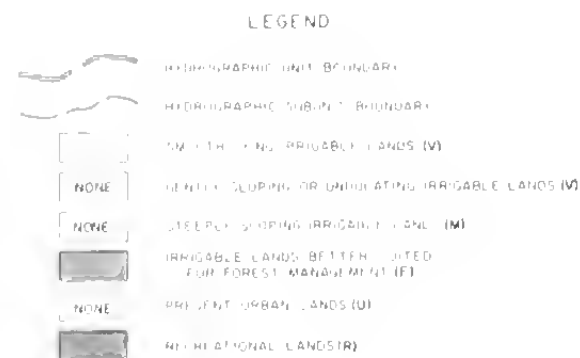 LEGEND
HYDROGRAPHIC UNIT BOUNDARY
HYDROGRAPHIC SUBUNIT BOUNDARY
SMOOTH LYING IRRIGABLE LANDS (V)
NONE GENTLY SLOPING OR UNDULATING IRRIGABLE LANDS (V)
NONE STEEPLY SLOPING IRRIGABLE LANDS (M)
IRRIGABLE LANDS BETTER SUITED
FOR FOREST MANAGEMENT (F)
NONE PRESENT URBAN LANDS (U)
RECREATIONAL LANDS (R)